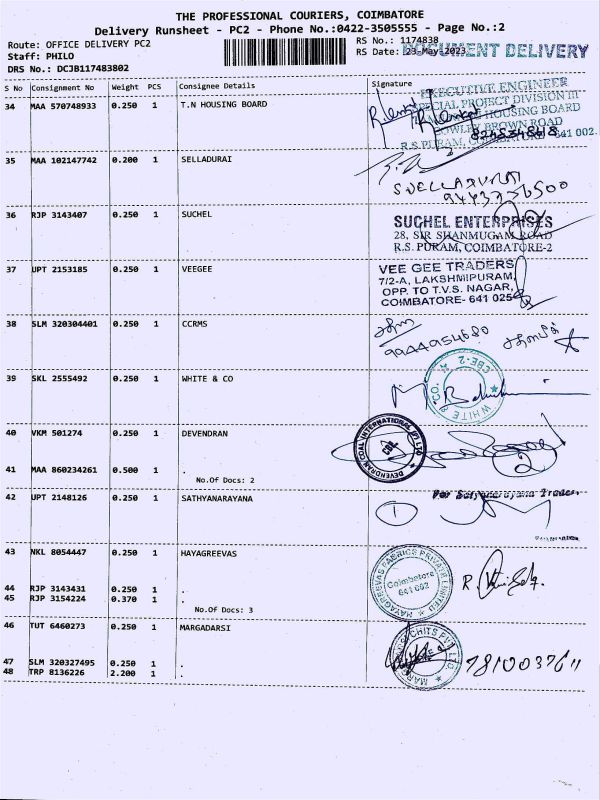 THE PROFESSIONAL COURIERS, COIMBATORE
Delivery Runsheet - PC2 - Phone No.:0422-3505555 - Page No.:2
Route: OFFICE DELIVERY PC2
RS No.: 1174838
Staff: PHILO
RS Date: 23-May-2023
DOCUMENT DELIVERY
DRS No.: DCJB117483802
S No Consignment No Weight PCS Consignee Details Signature
34 MAA 570748933 0.250 1 T.N HOUSING BOARD
EXECUTIVE ENGINEER
SPECIAL PROJECT DIVISION III
HOUSING BOARD
COWLEY BROWN ROAD
R.S PURAM, COIMBATORE 641 002.
35 MAA 102147742 0.200 1 SELLADURAI
SUELLADURAI
9443736500
36 RJP 3143407 0.250 1 SUCHEL
SUCHEL ENTERPRISES
28, SIR SHANMUGAM ROAD
R.S. PURAM, COIMBATORE-2
37 UPT 2153185 0.250 1 VEEGEE
VEE GEE TRADERS
7/2-A, LAKSHMIPURAM,
OPP. TO T.V.S. NAGAR,
COIMBATORE- 641 025
38 SLM 320304401 0.250 1 CCRMS
9944954680
39 SKL 2555492 0.250 1 WHITE & CO
WHITE & CO. ★ CBE-2 ★
40 VKM 501274 0.250 1 DEVENDRAN
DEVENDRAN COAL INTERNATIONAL (P) LTD
CBE
2
41 MAA 860234261 0.500 1 .
No.Of Docs: 2
42 UPT 2148126 0.250 1 SATHYANARAYANA
For Sathyanarayana Traders
1
43 NKL 8054447 0.250 1 HAYAGREEVAS
HAYAGREEVAS FABRICS PRIVATE LIMITED ★
Coimbatore
641 002
44 RJP 3143431 0.250 1 .
45 RJP 3154224 0.370 1 .
No.Of Docs: 3
46 TUT 6460273 0.250 1 MARGADARSI
7810037611
47 SLM 320327495 0.250 1 .
48 TRP 8136226 2.200 1 .